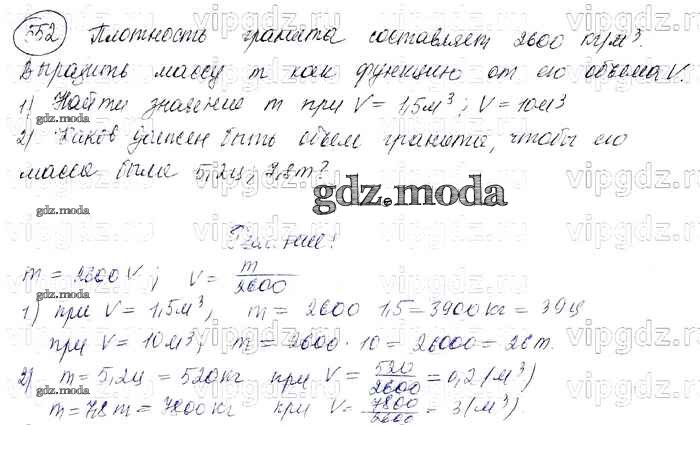 552 Плотность гранита составляет 2600 кг/м³.
Выразить массу m как функцию от его объема V.
1) Найти значение m при V = 1,5м³; V = 10м³
2) Каков должен быть объем гранита, чтобы его
масса была 5,2ц; 7,8т?
gdz.moda
Решение:
m = 2600 V; V = m/2600
1) при V = 1,5м³, m = 2600 1,5 = 3900кг = 39ц
при V = 10м³; m = 2600 · 10 = 26000 = 26т.
2) m = 5,2ц = 520кг при V = 520/2600 = 0,2 (м³)
m = 7,8т = 7800кг при V = 7800/2600 = 3 (м³)